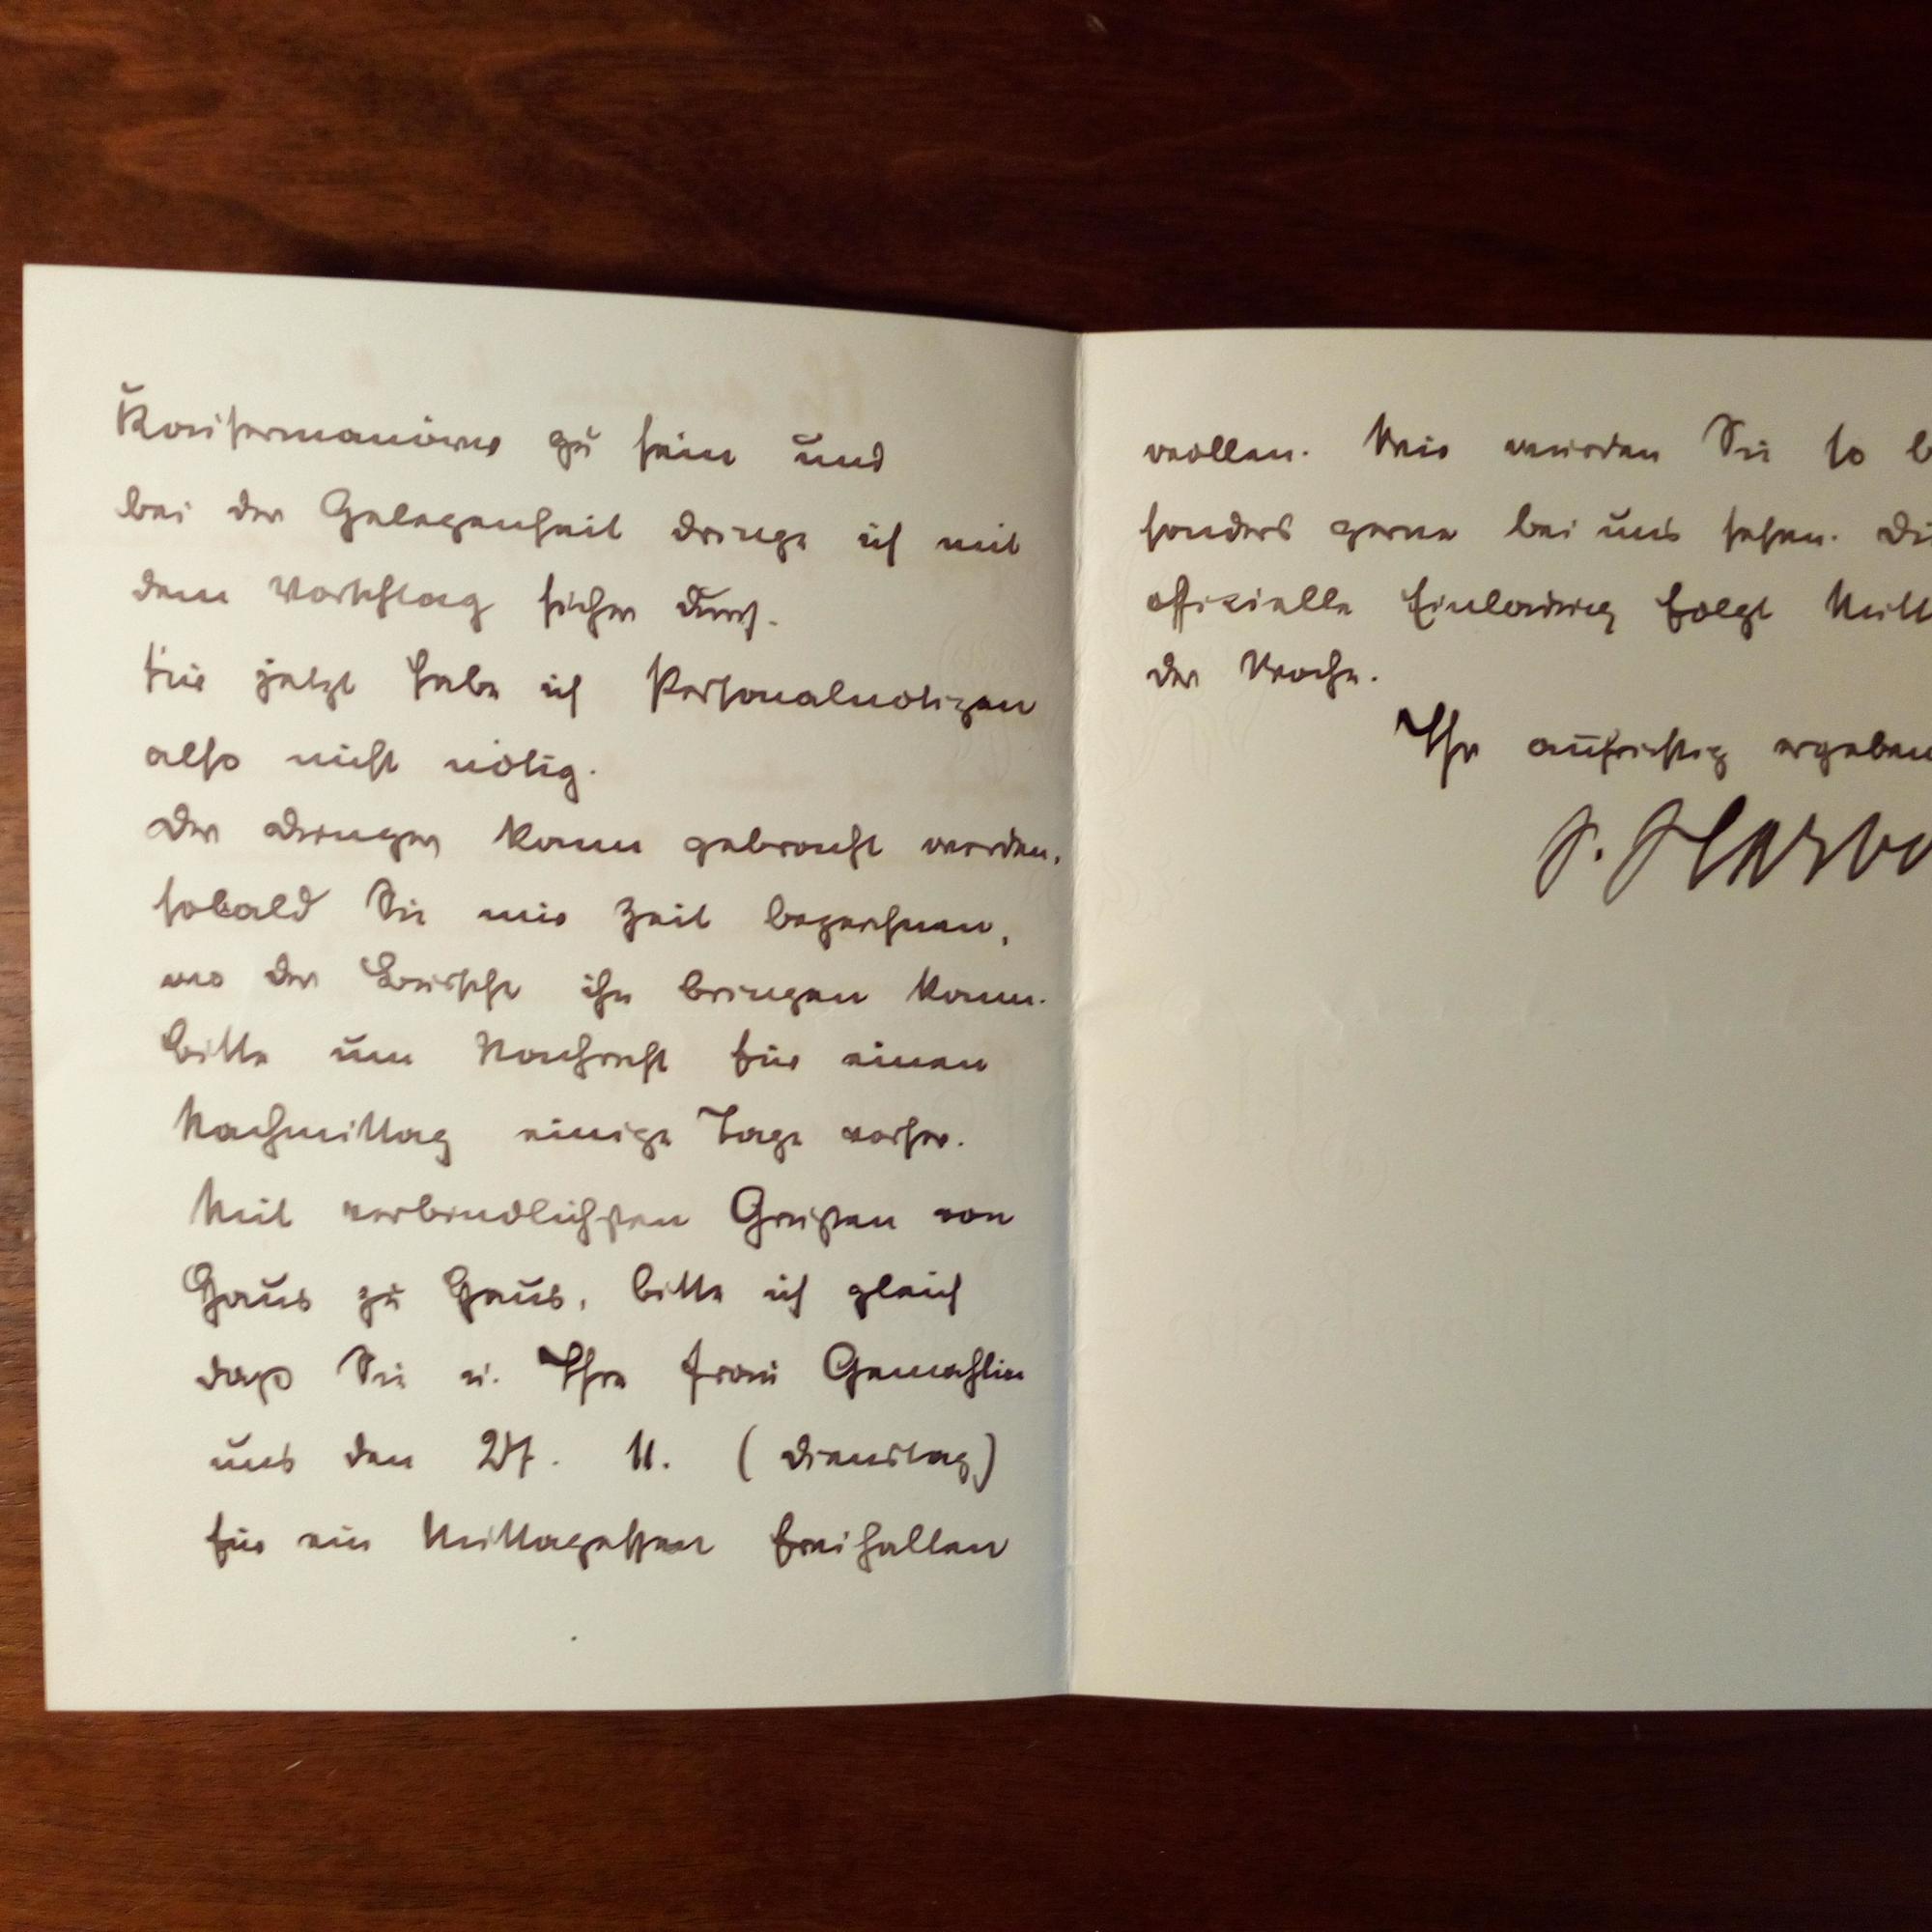 Kaisermanöver zu sein und
bei der Gelegenheit dringe ich mit
dem Vorschlag sicher durch.
Für jetzt habe ich Personalnotizen
also nicht nötig.
Der kann gebracht werden,
sobald Sie mir Zeit bezeichnen,
wo der Bursche ihn bringen kann.
Bitte um Nachricht für einen
Nachmittag einige Tage vorher.
Mit verbindlichsten Grüßen von
Haus zu Haus, bitte ich gleich
daß Sie u. Ihre Frau Gemahlin
uns den 27. 11. (Dienstag)
für ein Mittagessen freihalten
wollen. Wir würden Sie so b
sonders gerne bei uns sehen. Di
offizielle Einladung folgt Mitt
der Woche.
Ihr aufrichtig ergeben